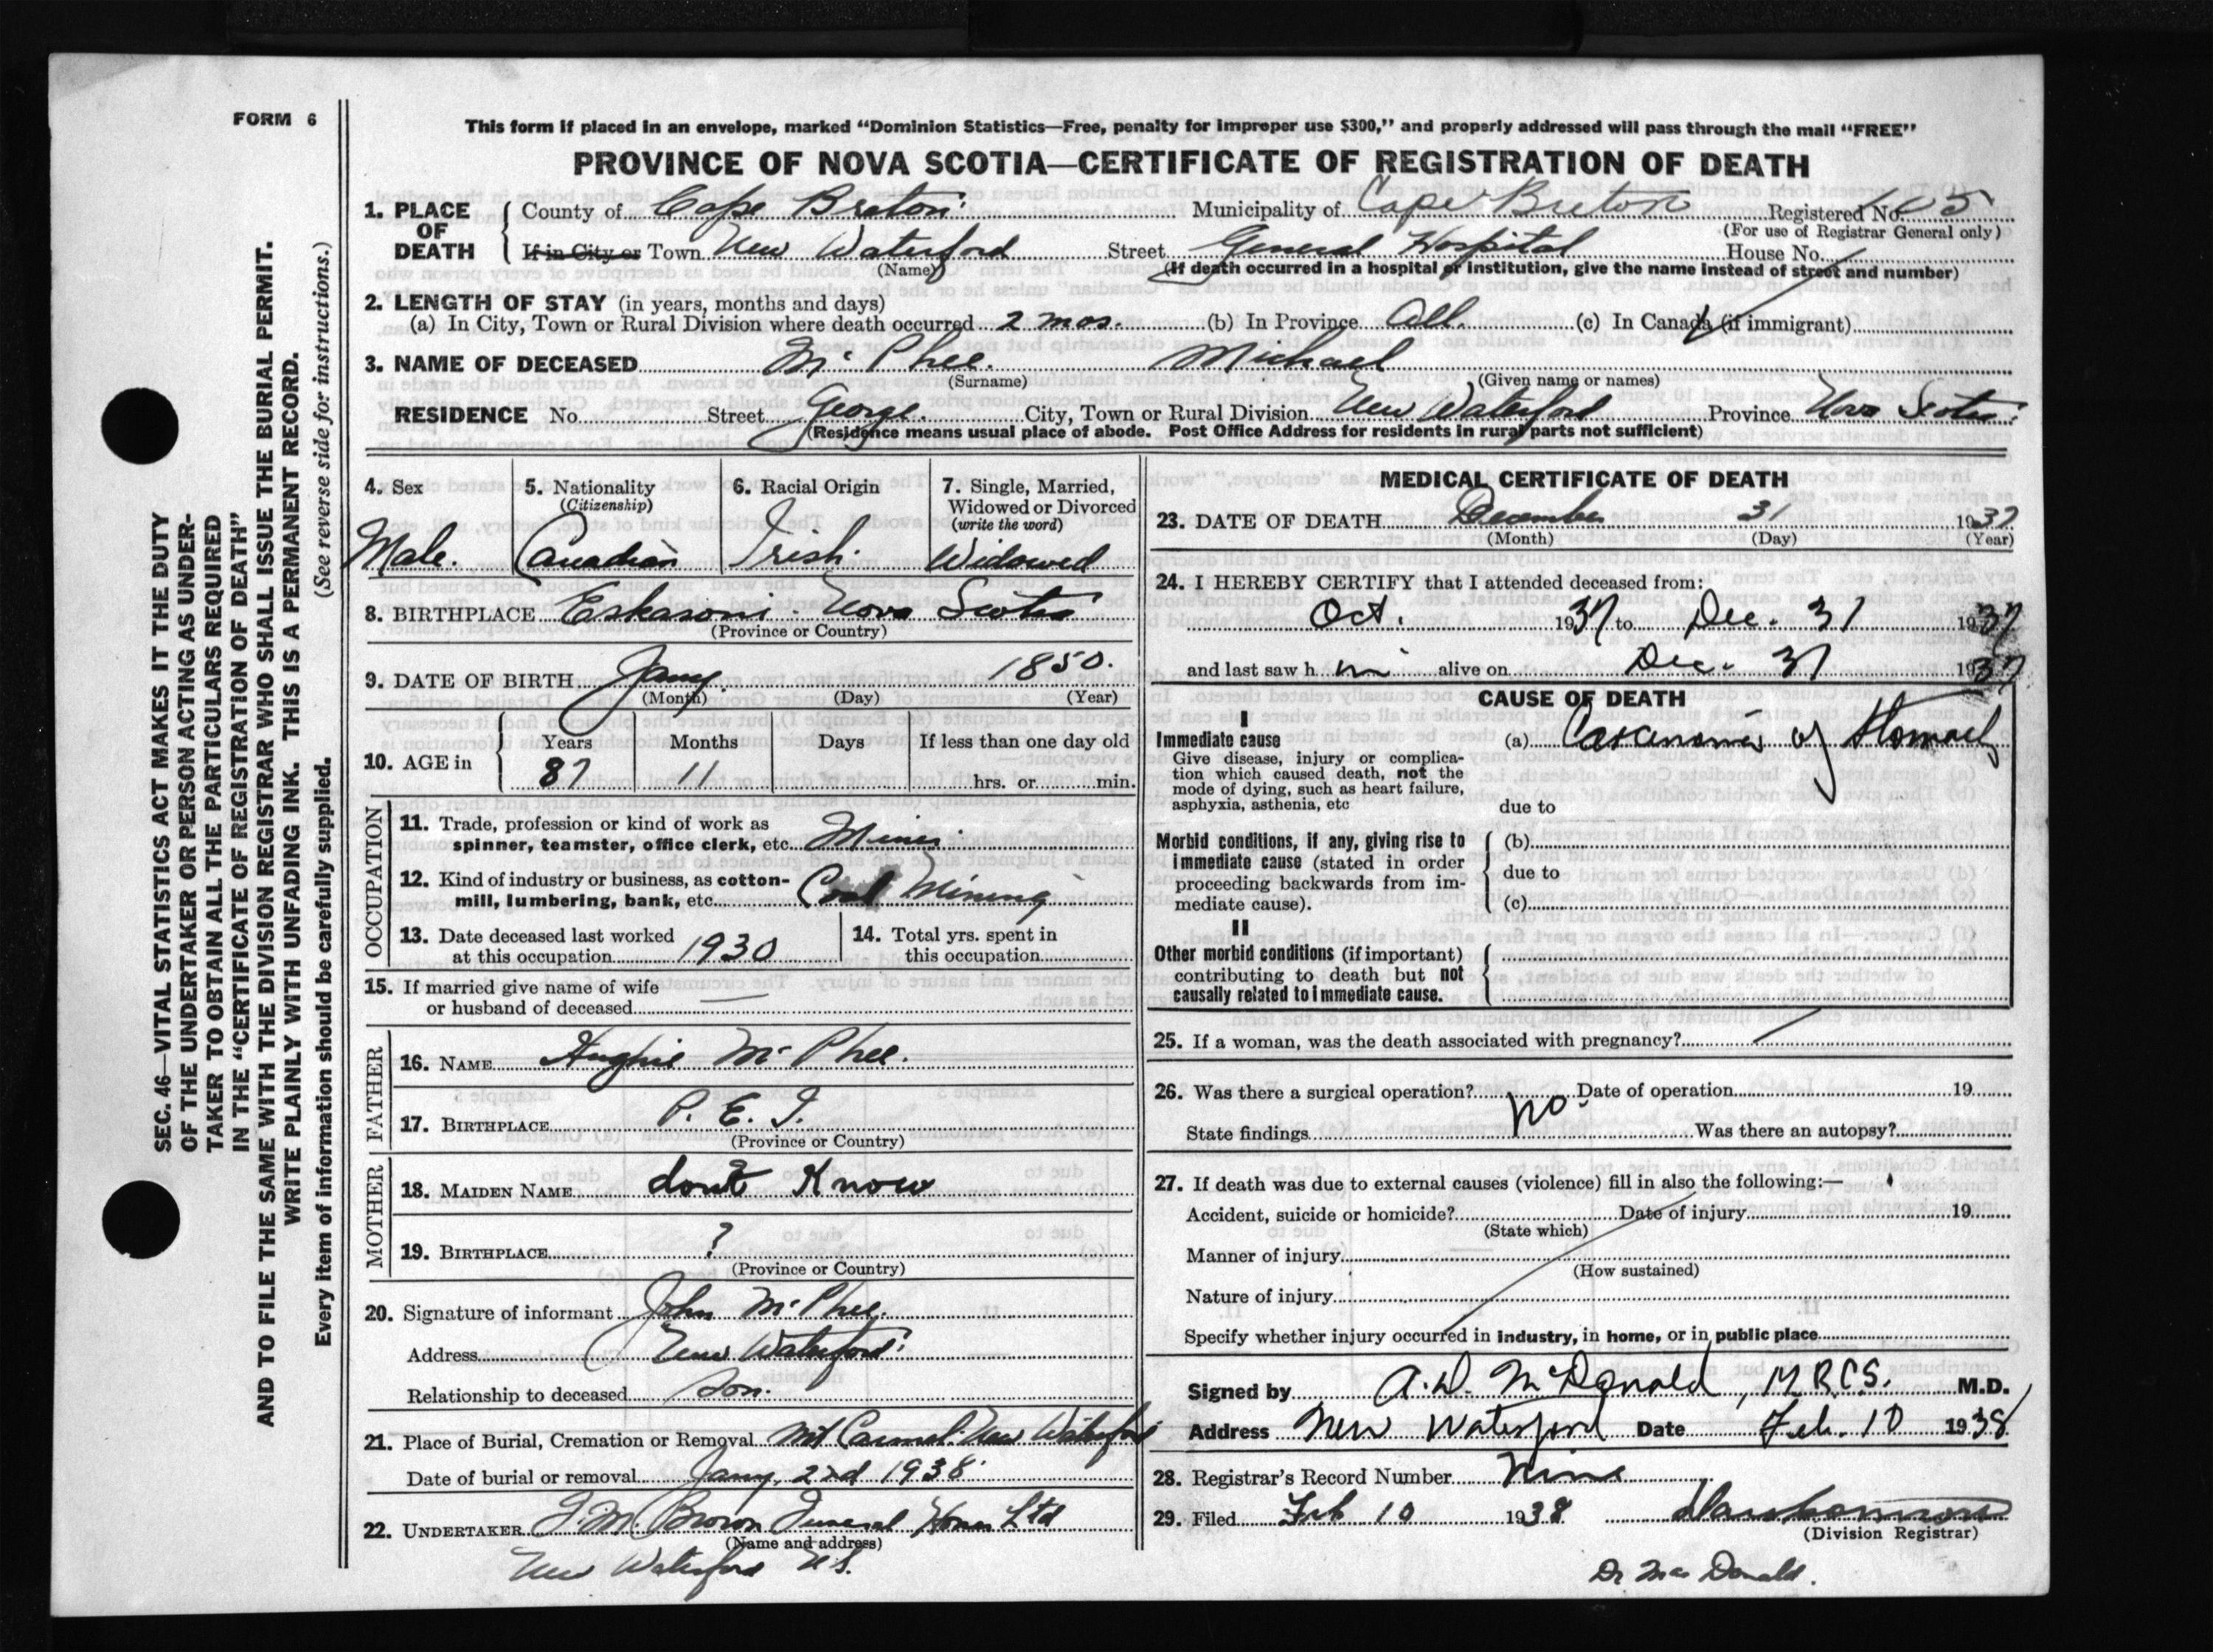 FORM 6
This form if placed in an envelope, marked “Dominion Statistics—Free, penalty for improper use $300,” and properly addressed will pass through the mail “FREE”
PROVINCE OF NOVA SCOTIA—CERTIFICATE OF REGISTRATION OF DEATH
SEC. 46—VITAL STATISTICS ACT MAKES IT THE DUTY
OF THE UNDERTAKER OR PERSON ACTING AS UNDER-
TAKER TO OBTAIN ALL THE PARTICULARS REQUIRED
IN THE “CERTIFICATE OF REGISTRATION OF DEATH”
AND TO FILE THE SAME WITH THE DIVISION REGISTRAR WHO SHALL ISSUE THE BURIAL PERMIT.
WRITE PLAINLY WITH UNFADING INK. THIS IS A PERMANENT RECORD.
Every item of information should be carefully supplied. (See reverse side for instructions.)
1. PLACE OF DEATH
County of Cape Breton Municipality of Cape Breton Registered No. 05
(For use of Registrar General only)
If in City or Town New Waterford Street General Hospital House No.
(Name) (If death occurred in a hospital or institution, give the name instead of street and number)
2. LENGTH OF STAY (in years, months and days)
(a) In City, Town or Rural Division where death occurred 2 mos. (b) In Province All. (c) In Canada (if immigrant)
3. NAME OF DECEASED Mc Phee. Michael
(Surname) (Given name or names)
RESIDENCE No. Street George. City, Town or Rural Division New Waterford Province Nova Scotia
(Residence means usual place of abode. Post Office Address for residents in rural parts not sufficient)
4. Sex
Male.
5. Nationality
(Citizenship)
Canadian
6. Racial Origin
Irish.
7. Single, Married,
Widowed or Divorced
(write the word)
Widowed
8. BIRTHPLACE Eskasoni Nova Scotia
(Province or Country)
9. DATE OF BIRTH Jany. 1850.
(Month) (Day) (Year)
10. AGE in
Years Months Days If less than one day old
87 11 hrs. or min.
OCCUPATION
11. Trade, profession or kind of work as
spinner, teamster, office clerk, etc. Miner
12. Kind of industry or business, as cotton-
mill, lumbering, bank, etc. Coal Mining
13. Date deceased last worked
at this occupation 1930
14. Total yrs. spent in
this occupation
15. If married give name of wife
or husband of deceased —
FATHER
16. NAME Hughie Mc Phee.
17. BIRTHPLACE P. E. I.
(Province or Country)
MOTHER
18. MAIDEN NAME dont Know
19. BIRTHPLACE ?
(Province or Country)
20. Signature of informant John Mc Phee.
Address New Waterford
Relationship to deceased Son.
21. Place of Burial, Cremation or Removal Mt Carmel. New Waterford
Date of burial or removal Jany. 22d 1938
22. UNDERTAKER Brown Funeral Home Ltd
(Name and address)
New Waterford N.S.
MEDICAL CERTIFICATE OF DEATH
23. DATE OF DEATH December 31 1937
(Month) (Day) (Year)
24. I HEREBY CERTIFY that I attended deceased from:
Oct. 1937 to Dec. 31 1937
and last saw h im alive on Dec. 31 1937
CAUSE OF DEATH
I
Immediate cause (a) Carcinoma of Stomach
Give disease, injury or complica-
tion which caused death, not the
mode of dying, such as heart failure,
asphyxia, asthenia, etc due to
Morbid conditions, if any, giving rise to (b)
immediate cause (stated in order
proceeding backwards from im- due to
mediate cause). (c)
II
Other morbid conditions (if important)
contributing to death but not
causally related to immediate cause.
25. If a woman, was the death associated with pregnancy?
26. Was there a surgical operation? No. Date of operation 19
State findings Was there an autopsy?
27. If death was due to external causes (violence) fill in also the following:—
Accident, suicide or homicide? Date of injury 19
(State which)
Manner of injury
(How sustained)
Nature of injury
Specify whether injury occurred in industry, in home, or in public place
Signed by A.D. McDonald, M.R.C.S. M.D.
Address New Waterford Date Feb. 10 1938
28. Registrar's Record Number Nine
29. Filed Feb 10 1938
(Division Registrar)
Dr Mac Donald.